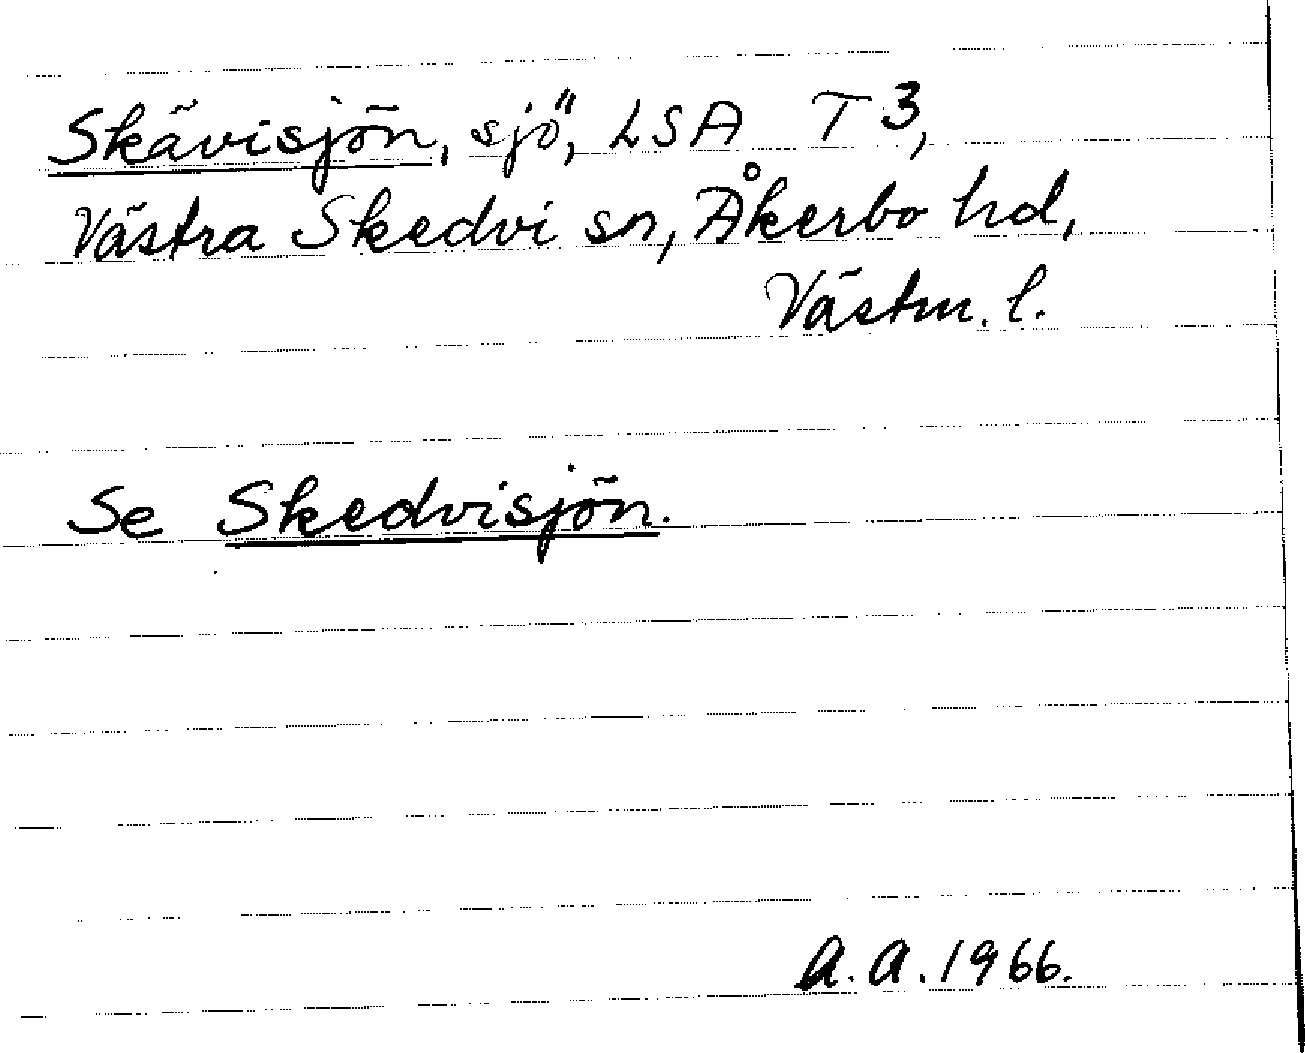 Skävisjön, sjö, LSA T 3,
Västra Skedvi sn, Åkerbo hd,
Västm. l.
Se Skedvisjön.
A. A. 1966.